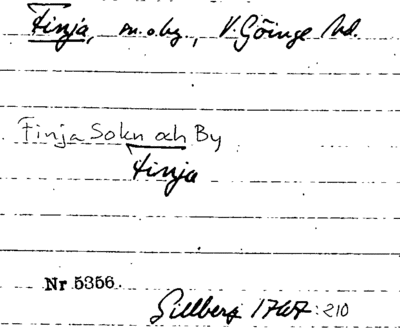 Finja, sn. o. by, V. Göinge hd.
Finja Sokn och By
Finja
Nr 5356.
Gillberg 1767:210